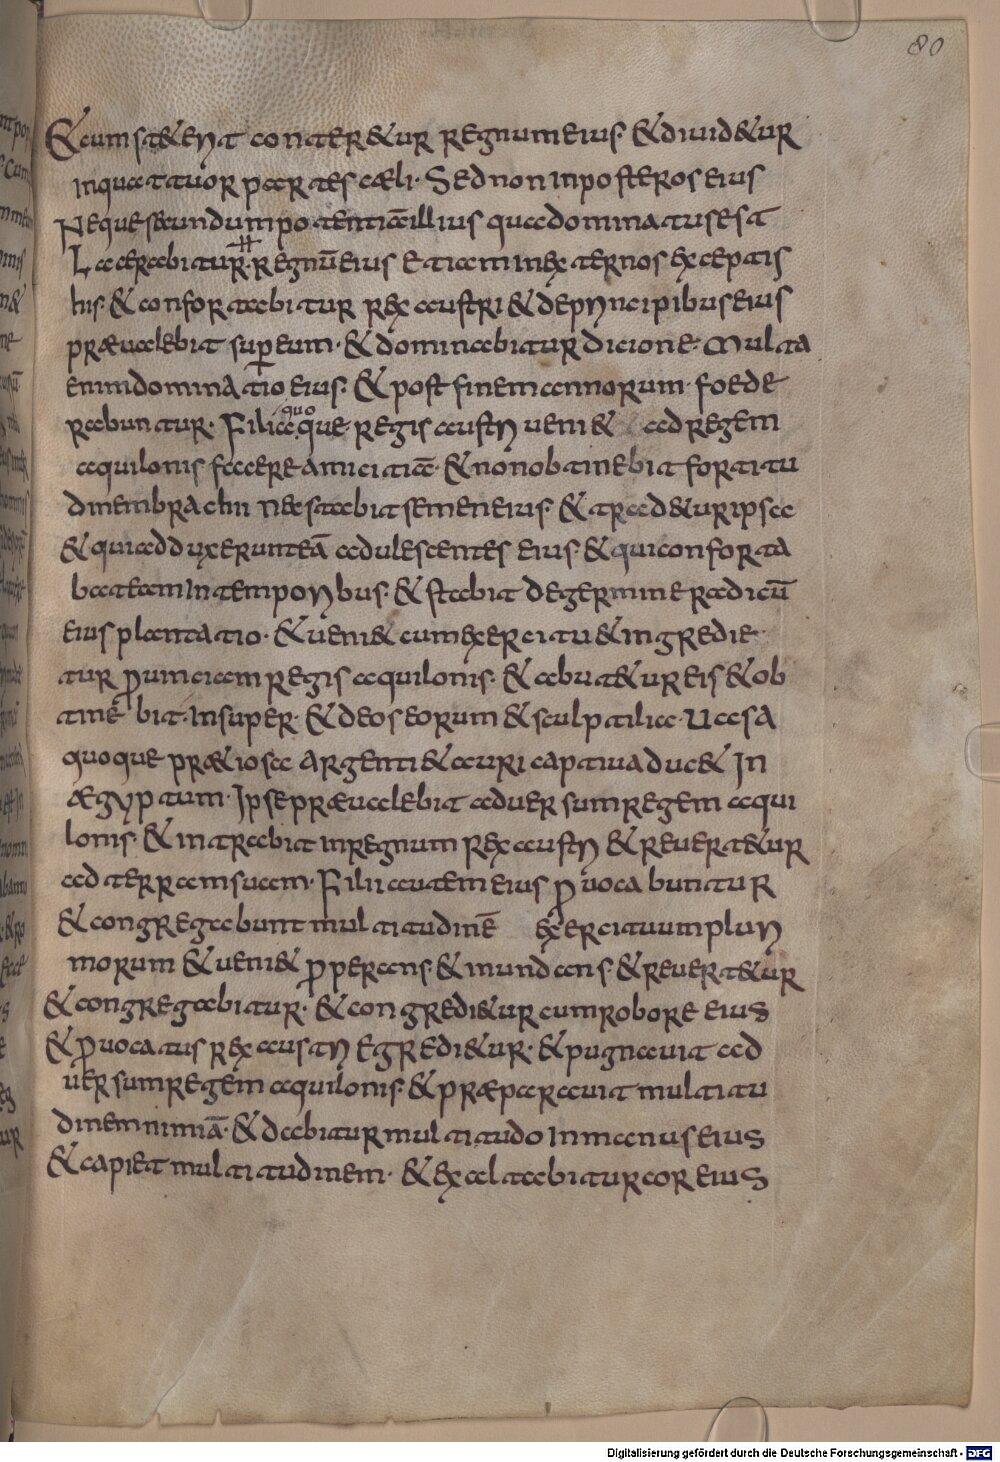 80
&cum st&erit conter&ur regnum eius· & diuid&ur
inquattuor partes cæli· Sed non inposteros eius
Neque secundum potentiā illius qua dominatus est
Lacerabitur· regnū eius etiam in externos exceptis
his· & confortabitur rex austri & de principibus eius
præualebit super eum· & dominabitur dicione· Multa
enim dominatio eius· & post finem annorum foede
rabuntur· Filiaque quo regis austri ueni& ad regem
aquilonis facere amicitiā· & non obtinebit fortitu
dinem brachii nec stabit semen eius· & trad&ur ipsa
& qui adduxerunt eā adulescentes eius· & qui conforta
bateam in temporibus· & stabit de germine radicū
eius plantatio· & ueni& cum exercitu & ingredie
tur ꝓuinciam regis aquilonis· & abut&ur eis & ob
tinebit· Insuper· & deos eorum & sculptilia· Uasa
quoque præ&iosa argenti & auri captiua duc& In
ægyptum· Ipse præualebit aduersum regem aqui
lonis· & intrabit in regnum rex austri & reuert&ur
ad terram suam· Filii autem eius ꝓuocabuntur
& congregabunt multitudinē exercituum pluri
morum & ueni& ꝓperans· & inundans· & reuert&ur
& congregabitur· & congredi&ur cum robore eius
& ꝓuocatus rex austri egredi&ur· & pugnauit ad
uersum regem aquilonis· & præparauit multitu
dinem nimiā· & dabitur multitudo in manus eius
& capiet multitudinem· & exaltabitur cor eius
Digitalisierung gefördert durch die Deutsche Forschungsgemeinschaft - DFG